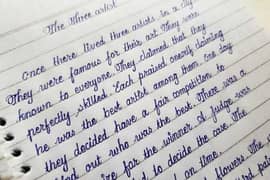 The Three artist
Once there lived three artists in a city.
They were famous for their art. They were
known to everyone. They claimed that they
perfectly skilled. Each praised oneself claiming
he was the best artist among them. One day
they decided have a fair competition to
out who is the best. There was a
for the winner. A judge was
to decide the case. The
on time.
flowers. The